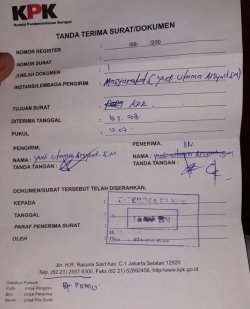 KPK
Komisi Pemberantasan Korupsi
TANDA TERIMA SURAT/DOKUMEN
NOMOR REGISTER :
NOMOR SURAT :
JUMLAH DOKUMEN : 1
INSTANSI/LEMBAGA PENGIRIM : Masyarakat (Yudi Utama Arsyad. S.M)
TUJUAN SURAT : KPK
DITERIMA TANGGAL :
PUKUL :
PENGIRIM, PENERIMA,
NAMA : Yudi Utama Arsyad. S.M NAMA : Yudi Utama Arsyad. S.M
TANDA TANGAN : TANDA TANGAN :
DOKUMEN/SURAT TERSEBUT TELAH DISERAHKAN,
KEPADA :
TANGGAL :
PARAF PENERIMA SURAT :
OLEH :
Jln. H.R. Rasuna Said Kav. C.1 Jakarta Selatan 12920
Telp. (62 21) 2557 8300, Faks (62 21) 52892456, http://www.kpk.go.id
Distribusi Formulir
Putih : Untuk Pengirim
Biru : Untuk Penerima
Merah : Untuk Pos Surat